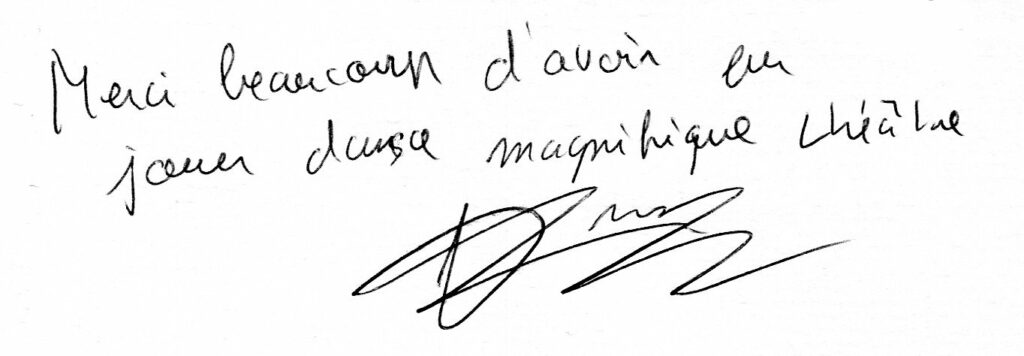 Merci beaucoup d'avoir pu
jouer dans ce magnifique théâtre